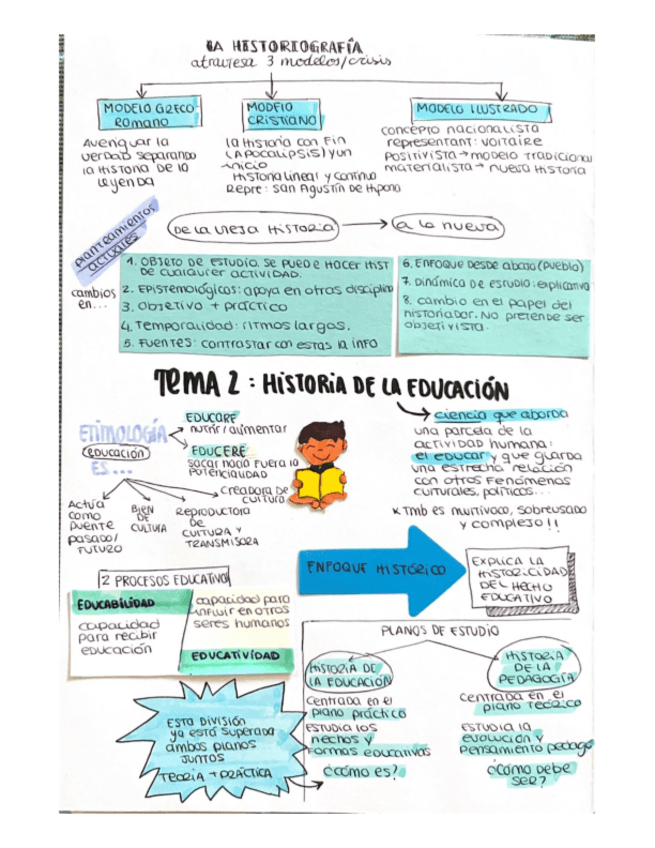 LA HISTORIOGRAFÍA
atraviesa 3 modelos/crisis
MODELO GRECO
ROMANO
Averiguar la
verdad separando
la historia de la
leyenda
MODELO
CRISTIANO
la historia con Fin
(APOCALIPSIS) y un
inicio
Historia lineal y continuo
Repre: San Agustín de Hipona
MODELO ILUSTRADO
CONCEPTO nacionalista
representant: Voltaire
POSITIVISTA → MODELO TRADICIONAL
materialista → nueva HISTORIA
PLANTEAMIENTOS
ACTUALES
DE LA VIEJA HISTORIA → a la nueva
cambios
en...
1. OBJETO DE ESTUDIO. SE PUEDE HACER HIST
DE cualquier ACTIVIDAD.
2. EPISTEMOLÓGICOS: apoya en otras disciplin
3. OBJETIVO + práctico
4. Temporalidad: ritmos largos.
5. FUENTES: CONTRASTAR con estas la info
6. ENFOQUE DESDE abajo (pueblo)
7. Dinámica de estudio: explicativa
8. cambio en el papel del
historiador. NO pretende ser
objetivista.
TEMA 2: HISTORIA DE LA EDUCACIÓN
ETIMOLOGÍA
educación
ES...
EDUCARE
nutrir/alimentar
EDUCERE
sacar hacia fuera la
POTENCIALIDAD
Actúa
como
puente
pasado/
FUTURO
BIEN
DE
CULTURA
REPRODUCTORA
DE
CULTURA Y
TRANSMISORA
creadora de
CULTURA
ciencia que aborda
una parcela de la
actividad humana:
el educar y que guarda
una estrecha relación
con otros Fenómenos
culturales, políticos...
* Tmb es multívoco, sobreusado
y complejo!!
ENFOQUE HISTÓRICO
EXPLICA LA
HISTORICIDAD
DEL HECHO
EDUCATIVO
2 PROCESOS EDUCATIVO
EDUCABILIDAD
capacidad
para recibir
educación
capacidad para
influir en otros
seres humanos
EDUCATIVIDAD
ESTA DIVISIÓN
ya está superada
ambos planos
JUNTOS
TEORIA + PRÁCTICA
PLANOS DE ESTUDIO
HISTORIA DE
LA EDUCACIÓN
Centrada en el
plano práctico
ESTUDIA los
hechos y
Formas educativas
¿cómo es?
HISTORIA
DE LA
PEDAGOGÍA
centrada en el
plano teórico
ESTUDIA la
evolución y
Pensamiento pedagó
¿Cómo debe
SER?